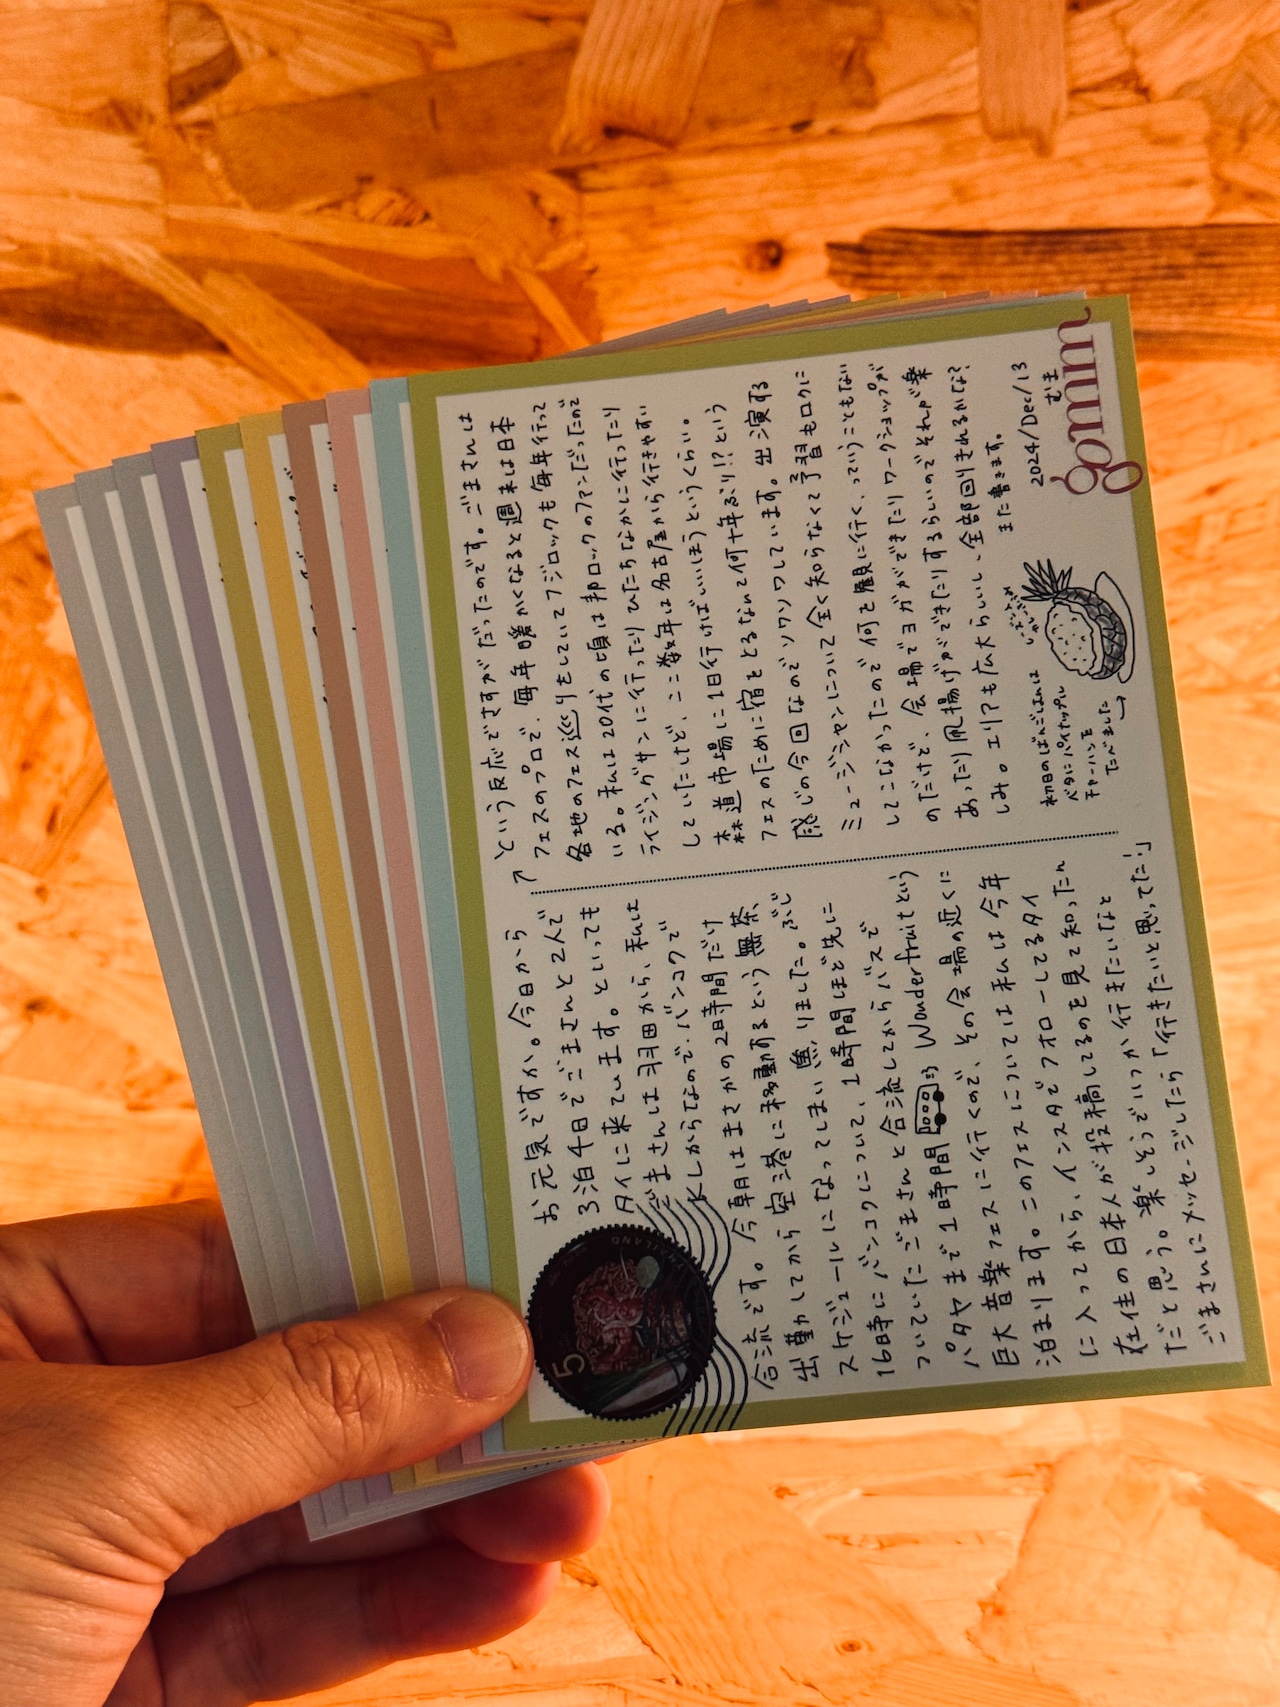 お元気ですか。今日から
3泊4日でごまさんと2人で
タイに来ています。といっても
ごまさんは羽田から、私は
KLからなので、バンコクで
合流です。今朝はまさかの2時間だけ
出勤してから空港に移動するという無茶
スケジュールになってしまい焦りました。ぶじ
16時にバンコクについて、1時間ほど先に
ついていたごまさんと合流してからバスで
パタヤまで1時間 Wonderfruitという
巨大音楽フェスに行くので、その会場の近くに
泊まります。このフェスについては私は今年
に入ってから、インスタでフォローしてるタイ
在住の日本人が投稿してるのを見て知ったん
だと思う。楽しそうでいつか行きたいなと
ごまさんにメッセージしたら「行きたいと思ってた!」
↗という反応でさすがだったのです。ごまさんは
フェスのプロで、毎年暖かくなると週末は日本
各地のフェス巡りをしていてフジロックも毎年行って
いる。私は20代の頃は邦ロックのファンだったので
ライジングサンに行ったりひたちなかに行ったり
していたけど、ここ数年は名古屋から行きやすい
森道市場に1日行けばいいほうというくらい。
フェスのために宿をとるなんて何十年ぶり!?という
感じの今回なのでソワソワしています。出演する
ミュージシャンについて全く知らなくて予習もロクに
してこなかったので何を観に行く、っていうこともない
のだけど、会場でヨガができたりワークショップが
あったり凧揚げができたりするらしいのでそれが楽
しみ。エリアも広大らしいし、全部回りきれるかな?
また書きます。
2024/Dec/13
むま
初日のばんごはんは
ベタにパイナップル
チャーハンを
たべました
gomma
THAILAND
5